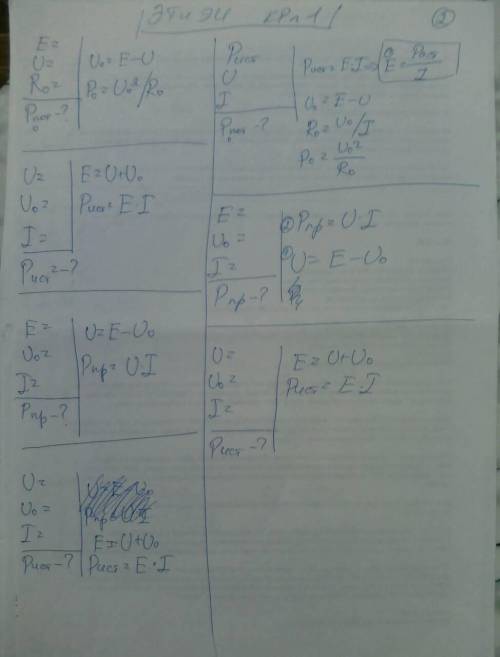 ЭТиЭИ КРп1
2
E=
U=
R₀=
Pпот-?
0
U₀ = E-U
P₀ = U₀²/R₀
U=
U₀=
I=
Pист-?
E=U+U₀
Pист=E·I
E=
U₀=
I=
Pпр-?
U=E-U₀
Pпр=U·I
U=
U₀=
I=
Pист-?
E=U+U₀
Pист=E·I
Pист
U
I
Pпот-?
0
Pист=E·I => E=Pист/I
U₀=E-U
R₀=U₀/I
P₀=U₀²/R₀
E=
U₀=
I=
Pпр-?
② Pпр=U·I
① U=E-U₀
U=
U₀=
I=
Pист-?
E=U+U₀
Pист=E·I